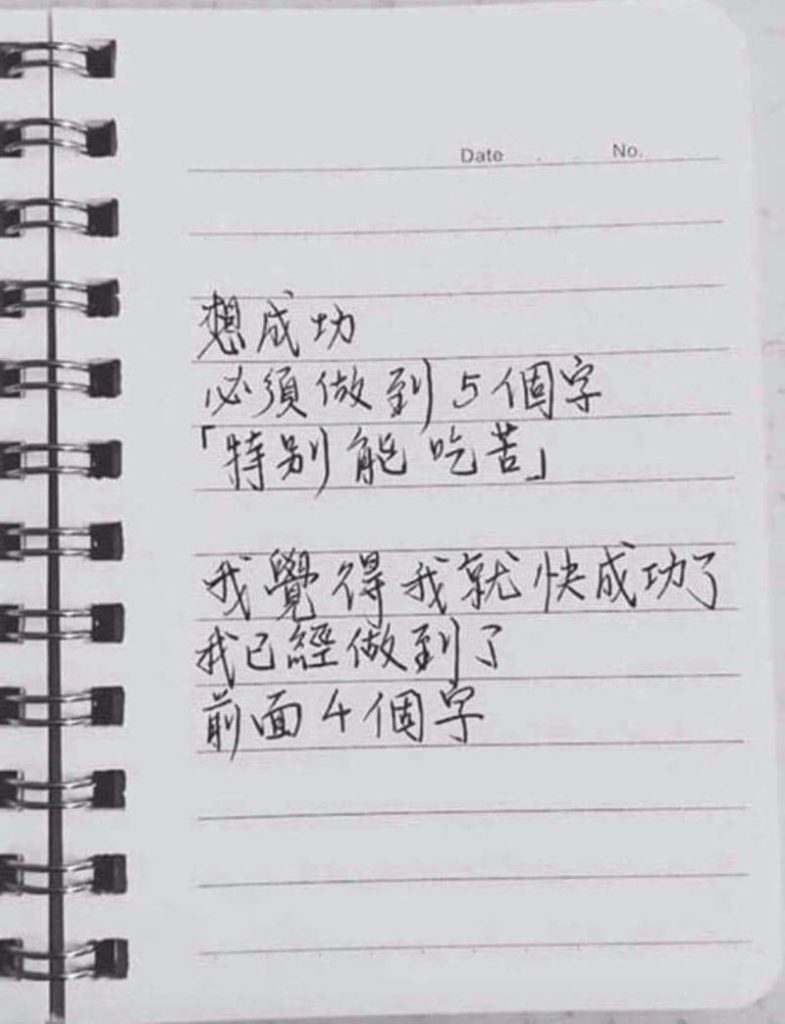 Date . No.
想成功
必須做到5個字
「特別能吃苦」
我覺得我就快成功了
我已經做到了
前面4個字